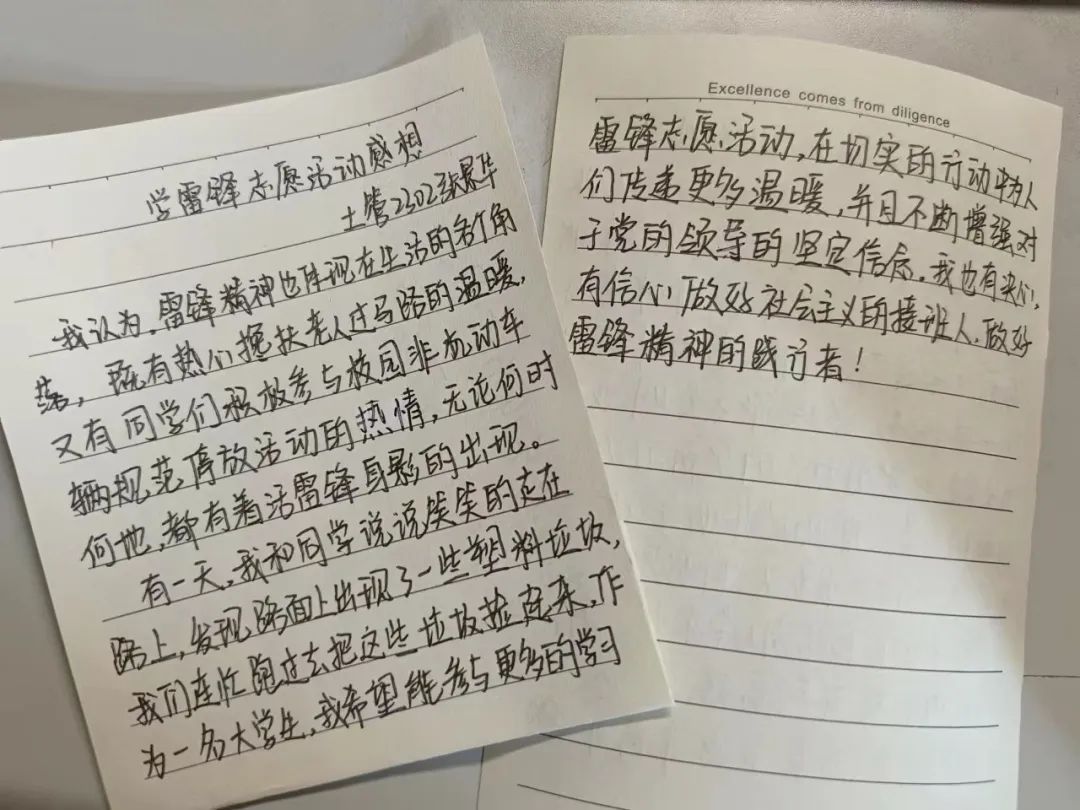 学雷锋志愿活动感想
土管2302张景华
我认为,雷锋精神也阵现在生活的各个角
落,既有热心搀扶老人过马路的温暖,
又有同学们积极参与校园非机动车
辆规范停放活动的热情,无论何时
何地,都有着活雷锋身影的出现。
有一天,我和同学说说笑笑的走在
路上,发现路面上出现了一些塑料垃圾,
我们连忙跑过去把这些垃圾捡起来,作
为一名大学生,我希望能参与更多的学习
Excellence comes from diligence
雷锋志愿活动,在切实的行动中为人
们传递更多温暖,并且不断增强对
于党的领导的坚定信念。我也有决心,
有信心做好社会主义的接班人,做好
雷锋精神的践行者!